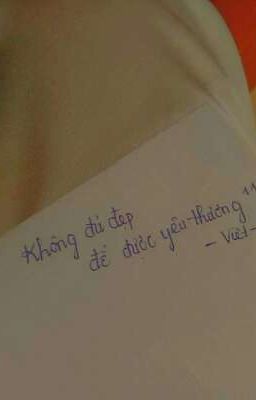 Không đủ đẹp
để được yêu thương"
- Việt -